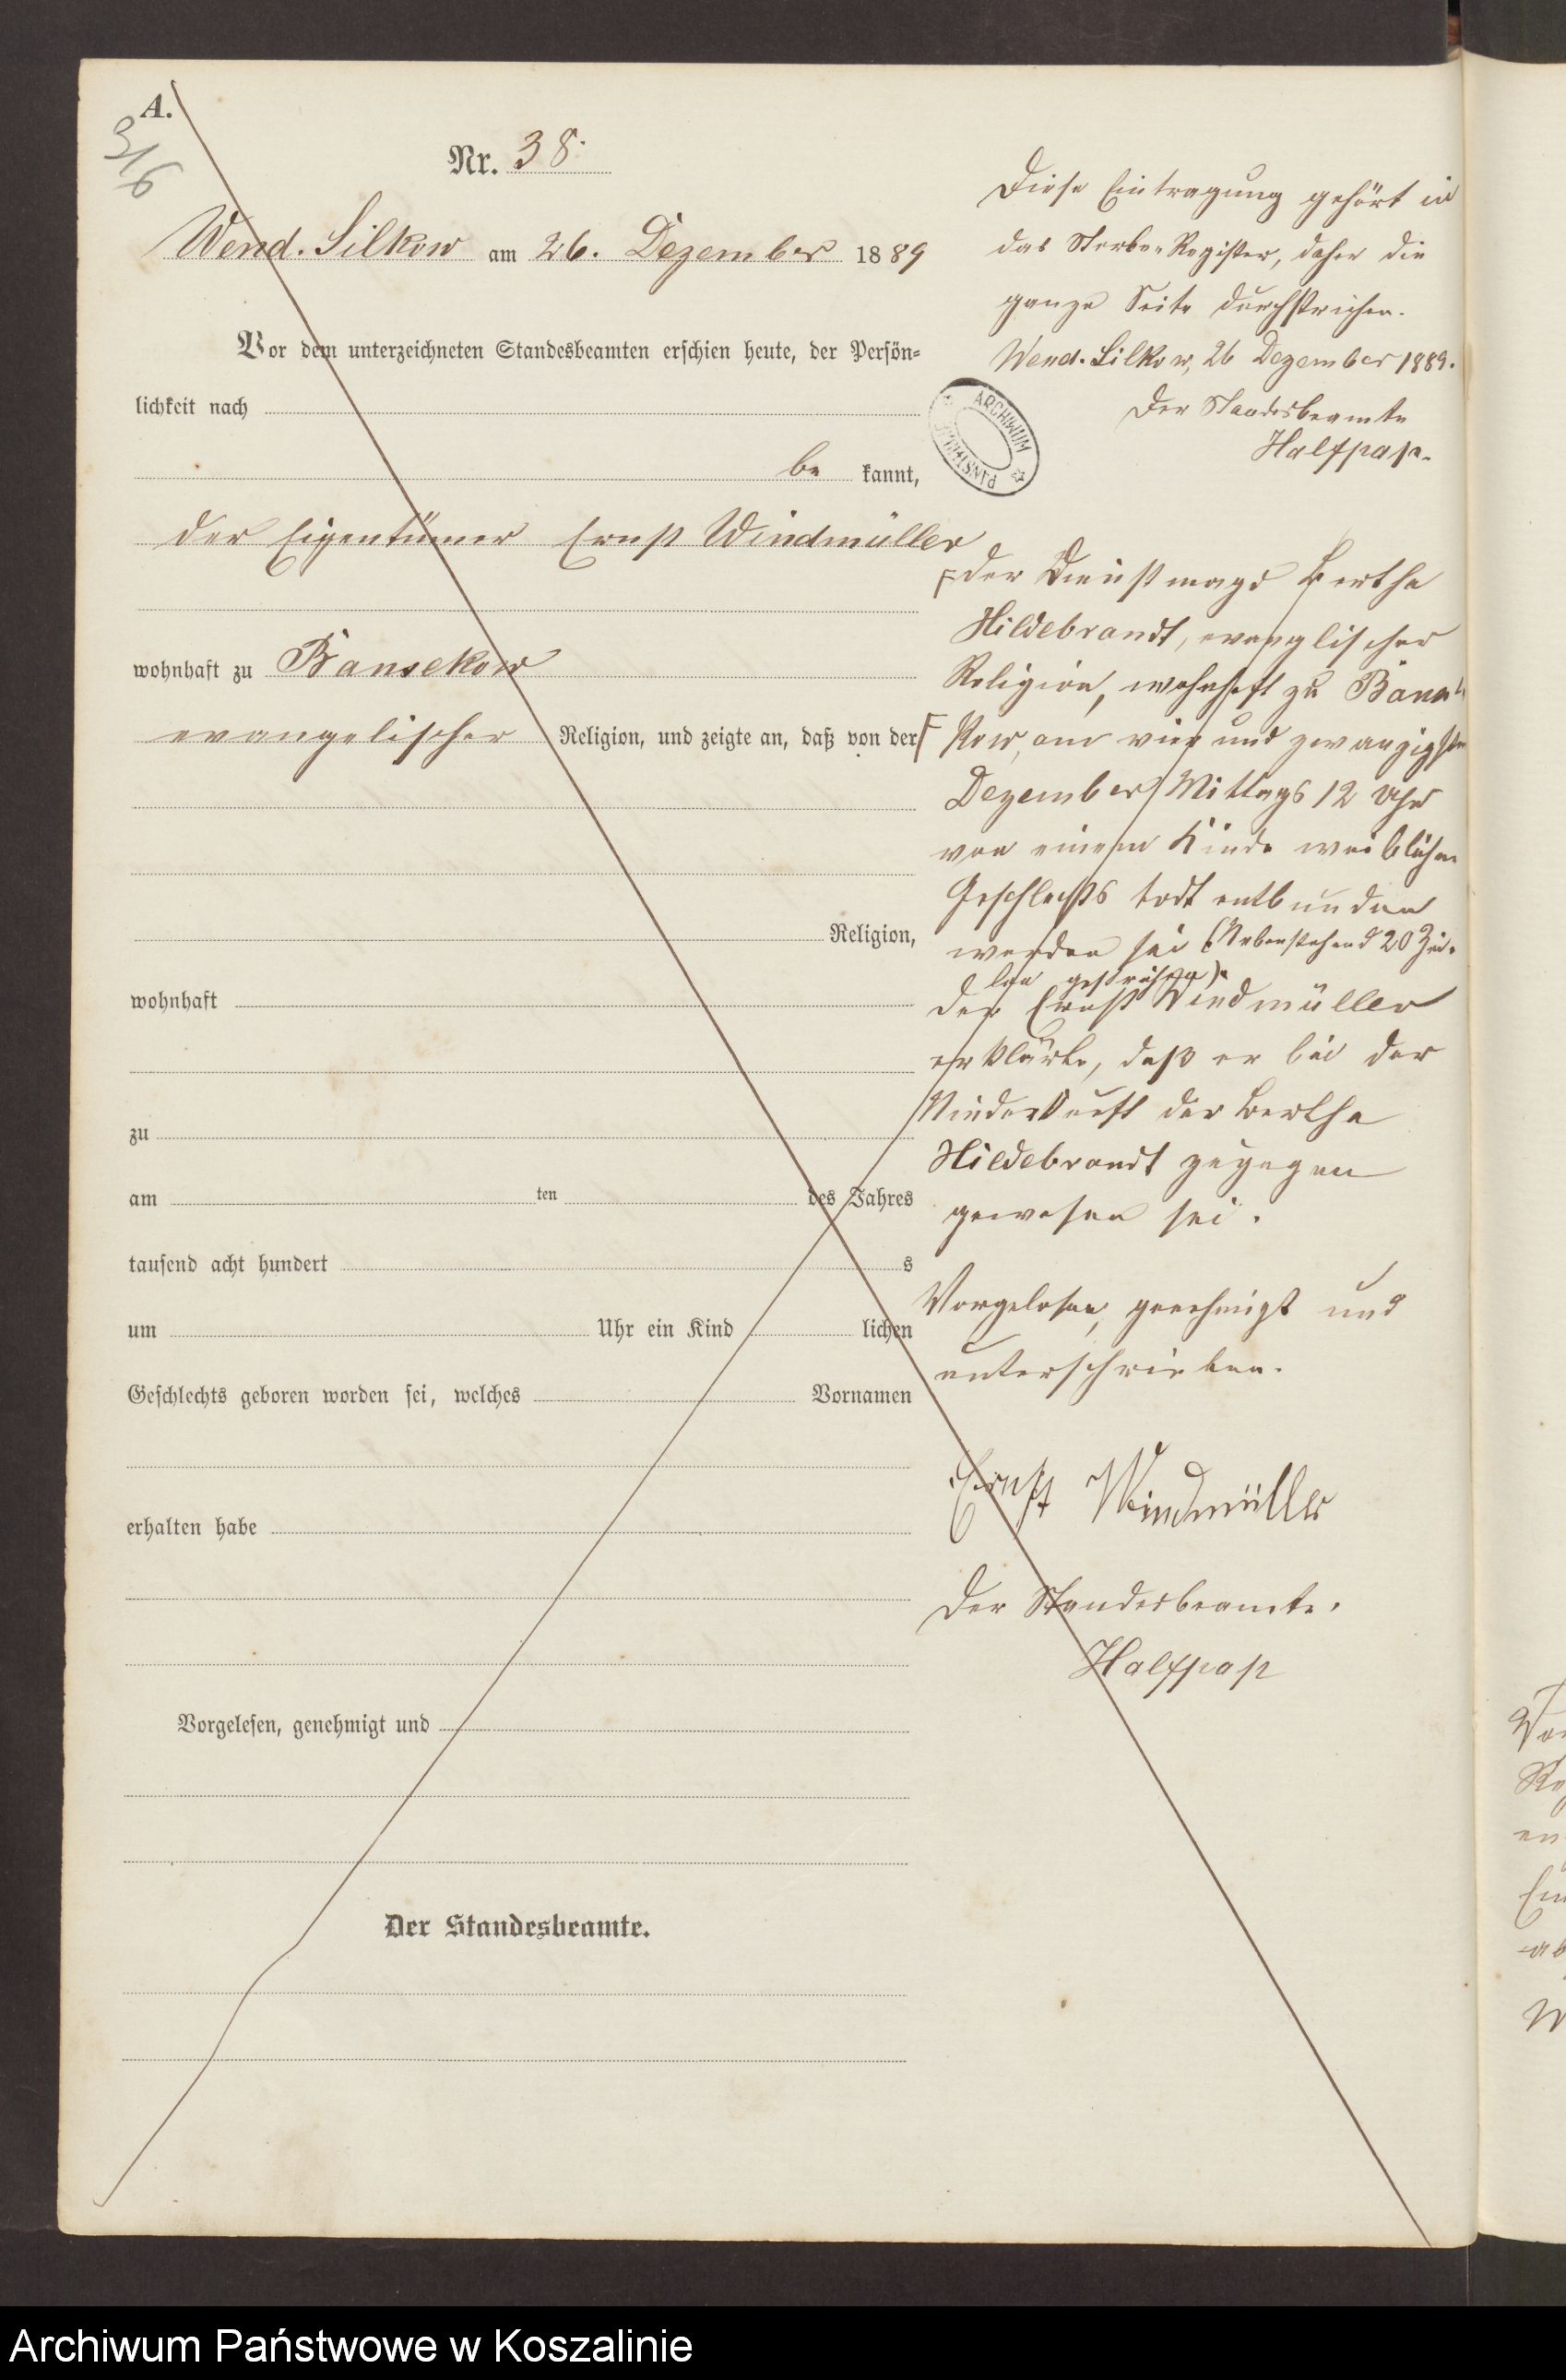 A.
3/6
Nr. 38.
Wend. Silkow am 26. Dezember 1889
Vor dem unterzeichneten Standesbeamten erschien heute, der Persön=
lichkeit nach
be kannt,
der Eigentümer Ernst Windmüller
wohnhaft zu Bansekow
evangelischer Religion, und zeigte an, daß von der
Religion,
wohnhaft
zu
am ten des Jahres
tausend acht hundert s
um Uhr ein Kind lichen
Geschlechts geboren worden sei, welches Vornamen
erhalten habe
Vorgelesen, genehmigt und
Der Standesbeamte.
Diese Eintragung gehört in
das Sterbe-Register, daher die
ganze Seite durchstrichen.
Wend. Silkow, 26 Dezember 1889.
Der Standesbeamte
Halfpap.
ARCHIWUM
der Dienstmagd Bertha
Hildebrandt, evanglischer
Religion, wohnhaft zu Banse
kow, am vier und zwanzigsten
Dezember Mittags 12 Uhr
von einem Kinde weiblichen
Geschlechts todt entbunden
worden sei (Nebenstehend 20 Zei-
len gestrichen).
Der Ernst Windmüller
erklärte, daß er bei der
Niederkunft der Bertha
Hildebrandt zugegen
gewesen sei.
Vorgelesen, genehmigt und
unterschrieben.
Ernst Windmüller
Der Standesbeamte.
Halfpap
Archiwum Państwowe w Koszalinie